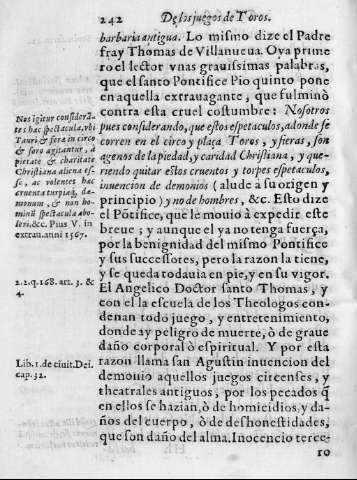 242 De los juegos de Toros.
barbaria antigua. Lo mismo dize el Padre
fray Thomas de Villanueua. Oya prime
ro el lector vnas grauissimas palabras,
que el santo Pontifice Pio quinto pone
en aquella extrauagante, que fulminò
contra esta cruel costumbre: Nosotros
pues considerando, que estos espetaculos, adonde se
corren en el circo y plaça Toros, y fieras, son
agenos de la piedad, y caridad Christiana, y que-
riendo quitar estos cruentos y torpes espetaculos,
inuencion de demonios (alude a su origen y
principio) y no de hombres, &c. Esto dize
el Põtifice, que le mouiò à expedir este
breue; y aunque el ya no tenga fuerça,
por la benignidad del mismo Pontifice
y sus successores, pero la razon la tiene,
y se queda todauia en pie, y en su vigor.
El Angelico Doctor santo Thomas, y
con el la escuela de los Theologos con-
denan todo juego, y entretenimiento,
donde ay peligro de muerte, ò de graue
daño corporal ò espiritual. Y por esta
razon llama san Agustin inuencion del
demonio aquellos juegos circenses, y
theatrales antiguos, por los pecados q̃
en ellos se hazian, ò de homicidios, y da-
ños del cuerpo, ò de deshonestidades,
que son daño del alma. Inocencio terce-
ro
Nos igitur considerã-
tes hac spectacula, vbi
Tauri & fera in circo
& foro agitantur, à
pietate & charitate
Christiana aliena es-
se, ac volentes hac
cruenta turpiaq́, da-
monum, & non ho-
minũ spectacula abo-
leri. &c. Pius V. in
extrau. anni 1567.
2. 2. q. 168. art. 3. &
4.
Lib. 1. de ciuit. Dei.
cap. 32.